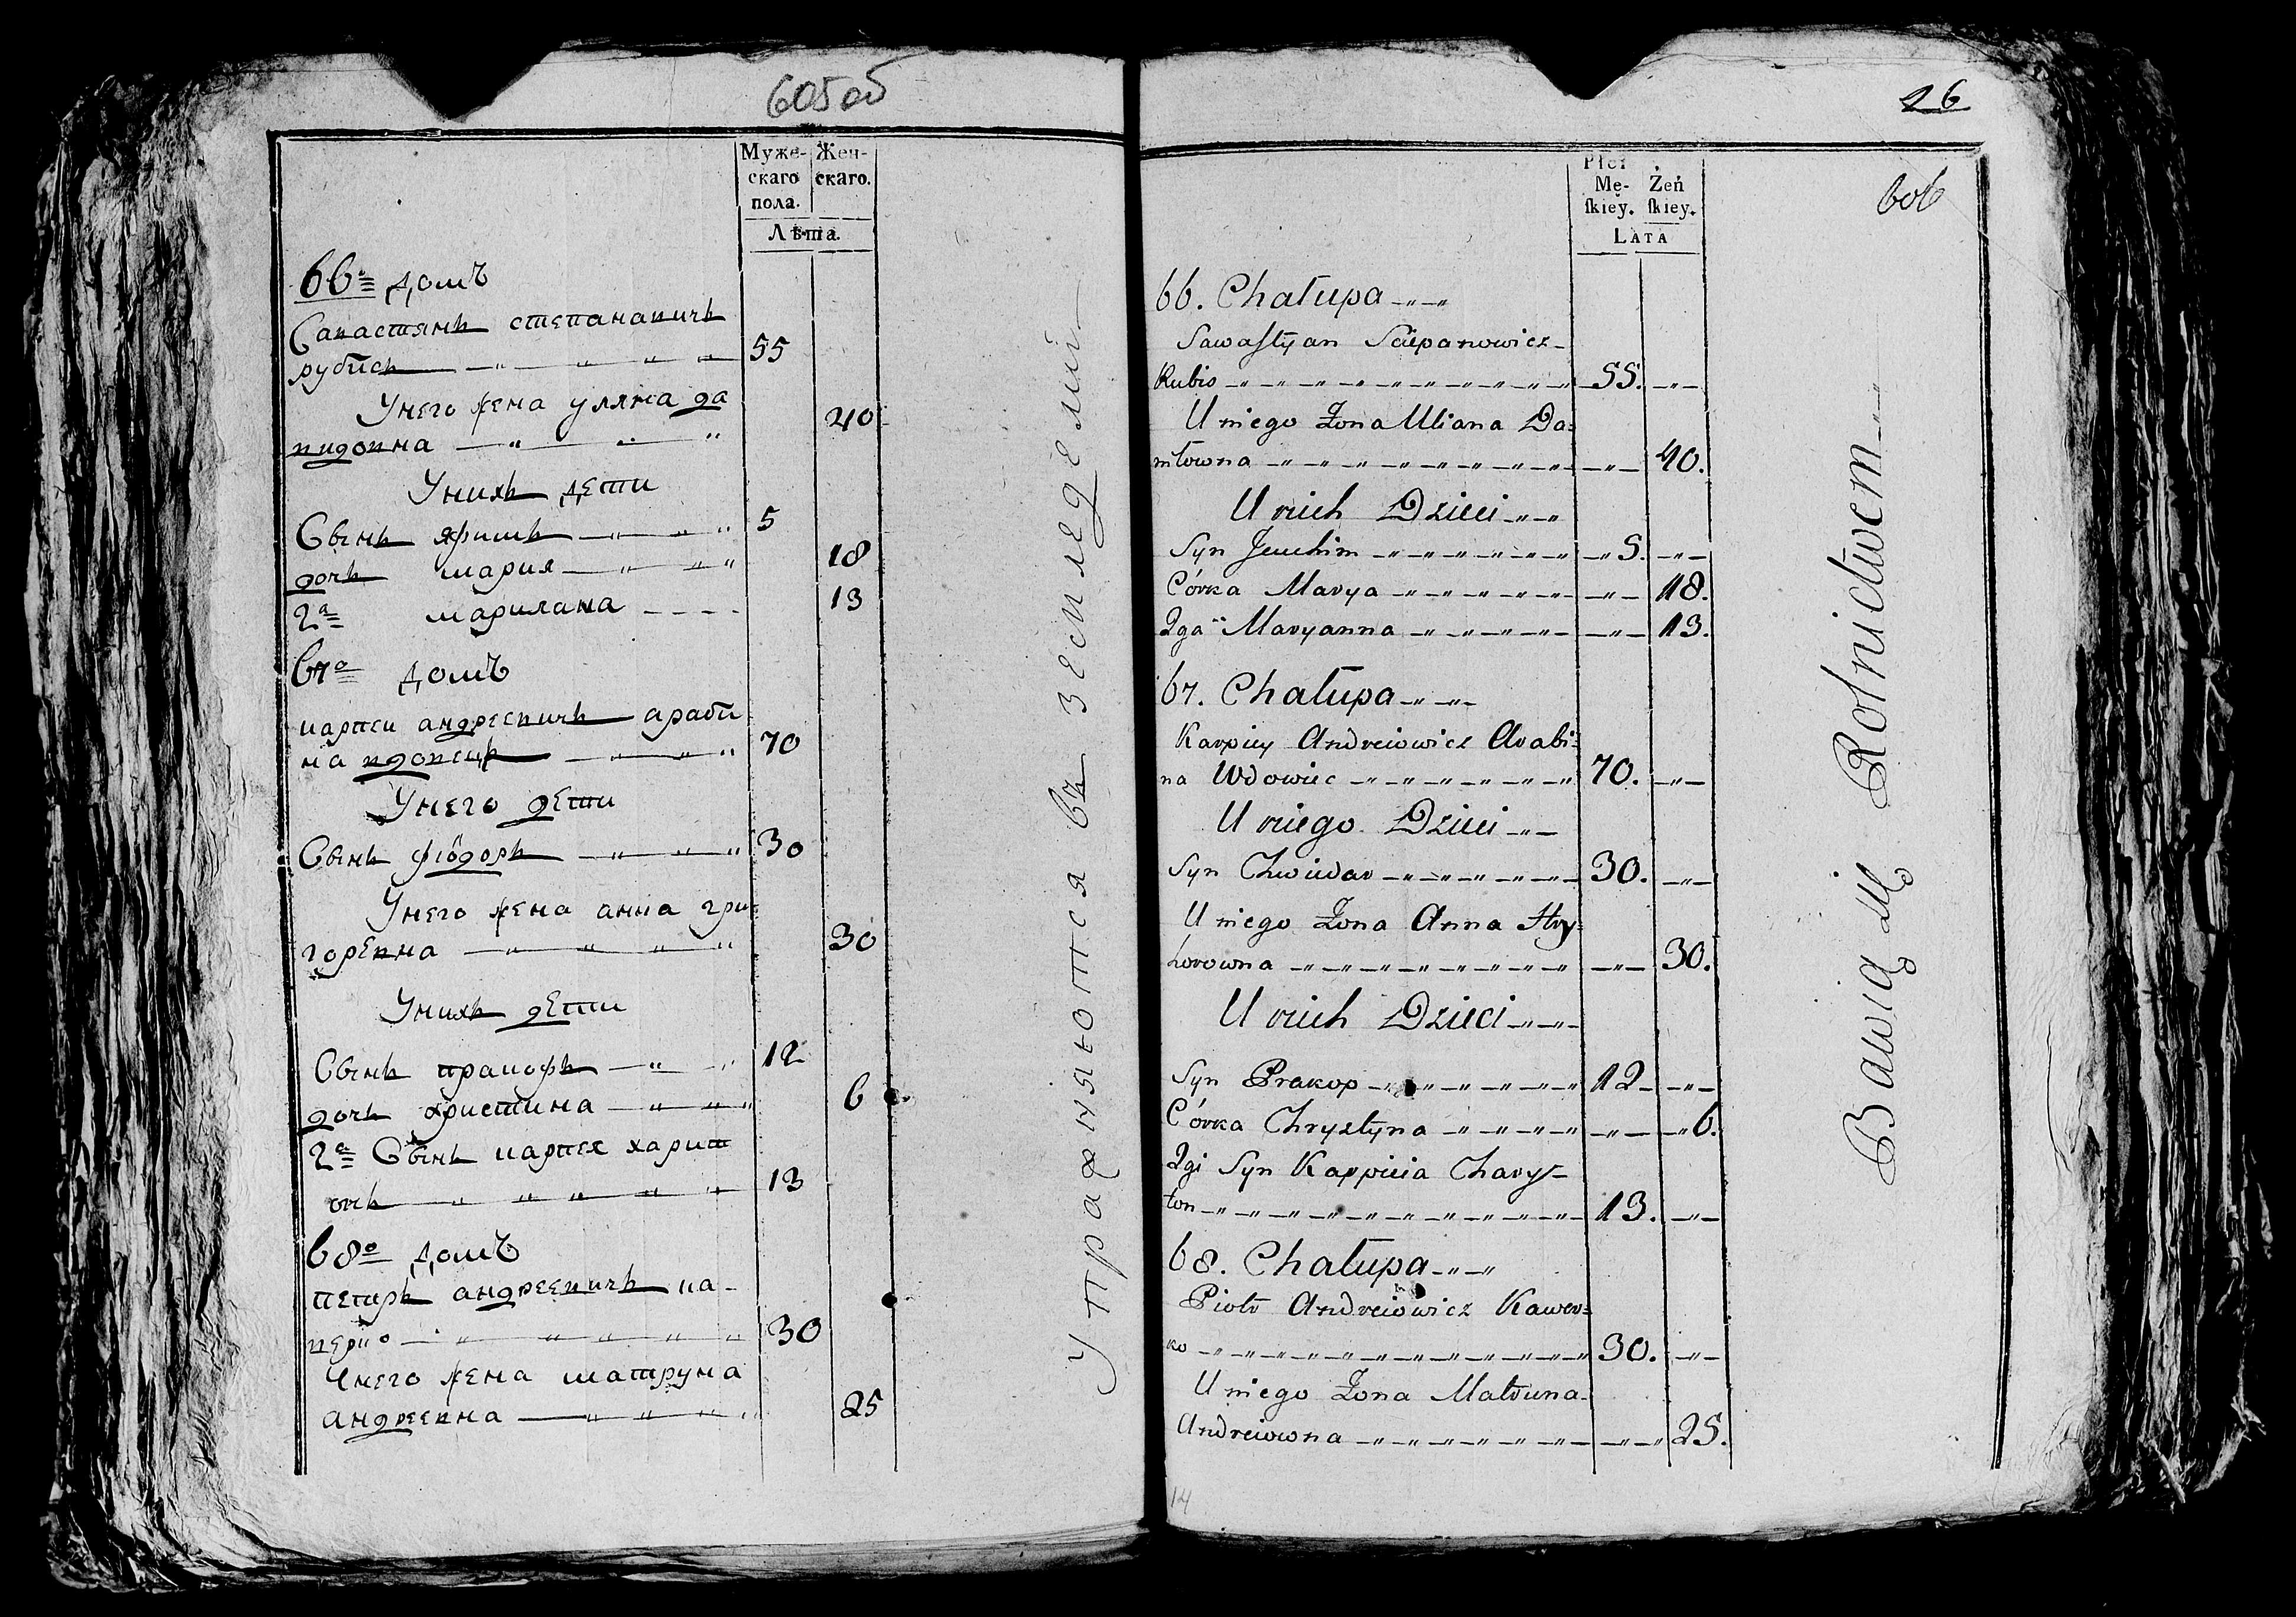 605об
Муже- Жен-
скаго скаго.
пола.
Лѣта.
66о домъ
Савастянъ степанавичъ
рубисъ 55
Унего жена уляна да
видовна 40
Унихъ дети
Сынъ яфимъ 5
дочъ мария 18
2я марияана 13
67о домъ
карпеи андреевичъ араби
на вдовецъ 70
Унего дети
Сынъ фіодоръ 30
Унего жена анна гри
горевна 30
Унихъ дети
Сынъ пракофъ 12
дочъ христина 6
2й Сынъ карпея харит
онъ 13
68о домъ
петръ андреевичъ ка-
верко 30
Унего жена матруна
андреевна 25
упражняются въ земледелии
26
606
Płci
Mę- Żeń
skiey. skiey.
LATA
66. Chałupa
Sawastyan Sciepanowicz
Rubis 55.
U niego Żona Uliana Da=
niłowna 40.
U nich Dzieci
Syn Jeuchim 5.
Córka Marya 18.
2ga Maryanna 13.
67. Chałupa
Karpiey Andreiowicz Arabi=
na Wdowiec 70.
U niego Dzieci
Syn Chwiedar 30.
U niego Żona Anna Hry=
horowna 30.
U nich Dzieci
Syn Prakop 12
Córka Chrystyna 6.
2gi Syn Karpieia Chary=
ton 13.
68. Chałupa
Piotr Andreiowicz Kawer=
ko 30.
U niego Żona Matruna
Andreiowna 25.
Bawią się Rolnictwem
14